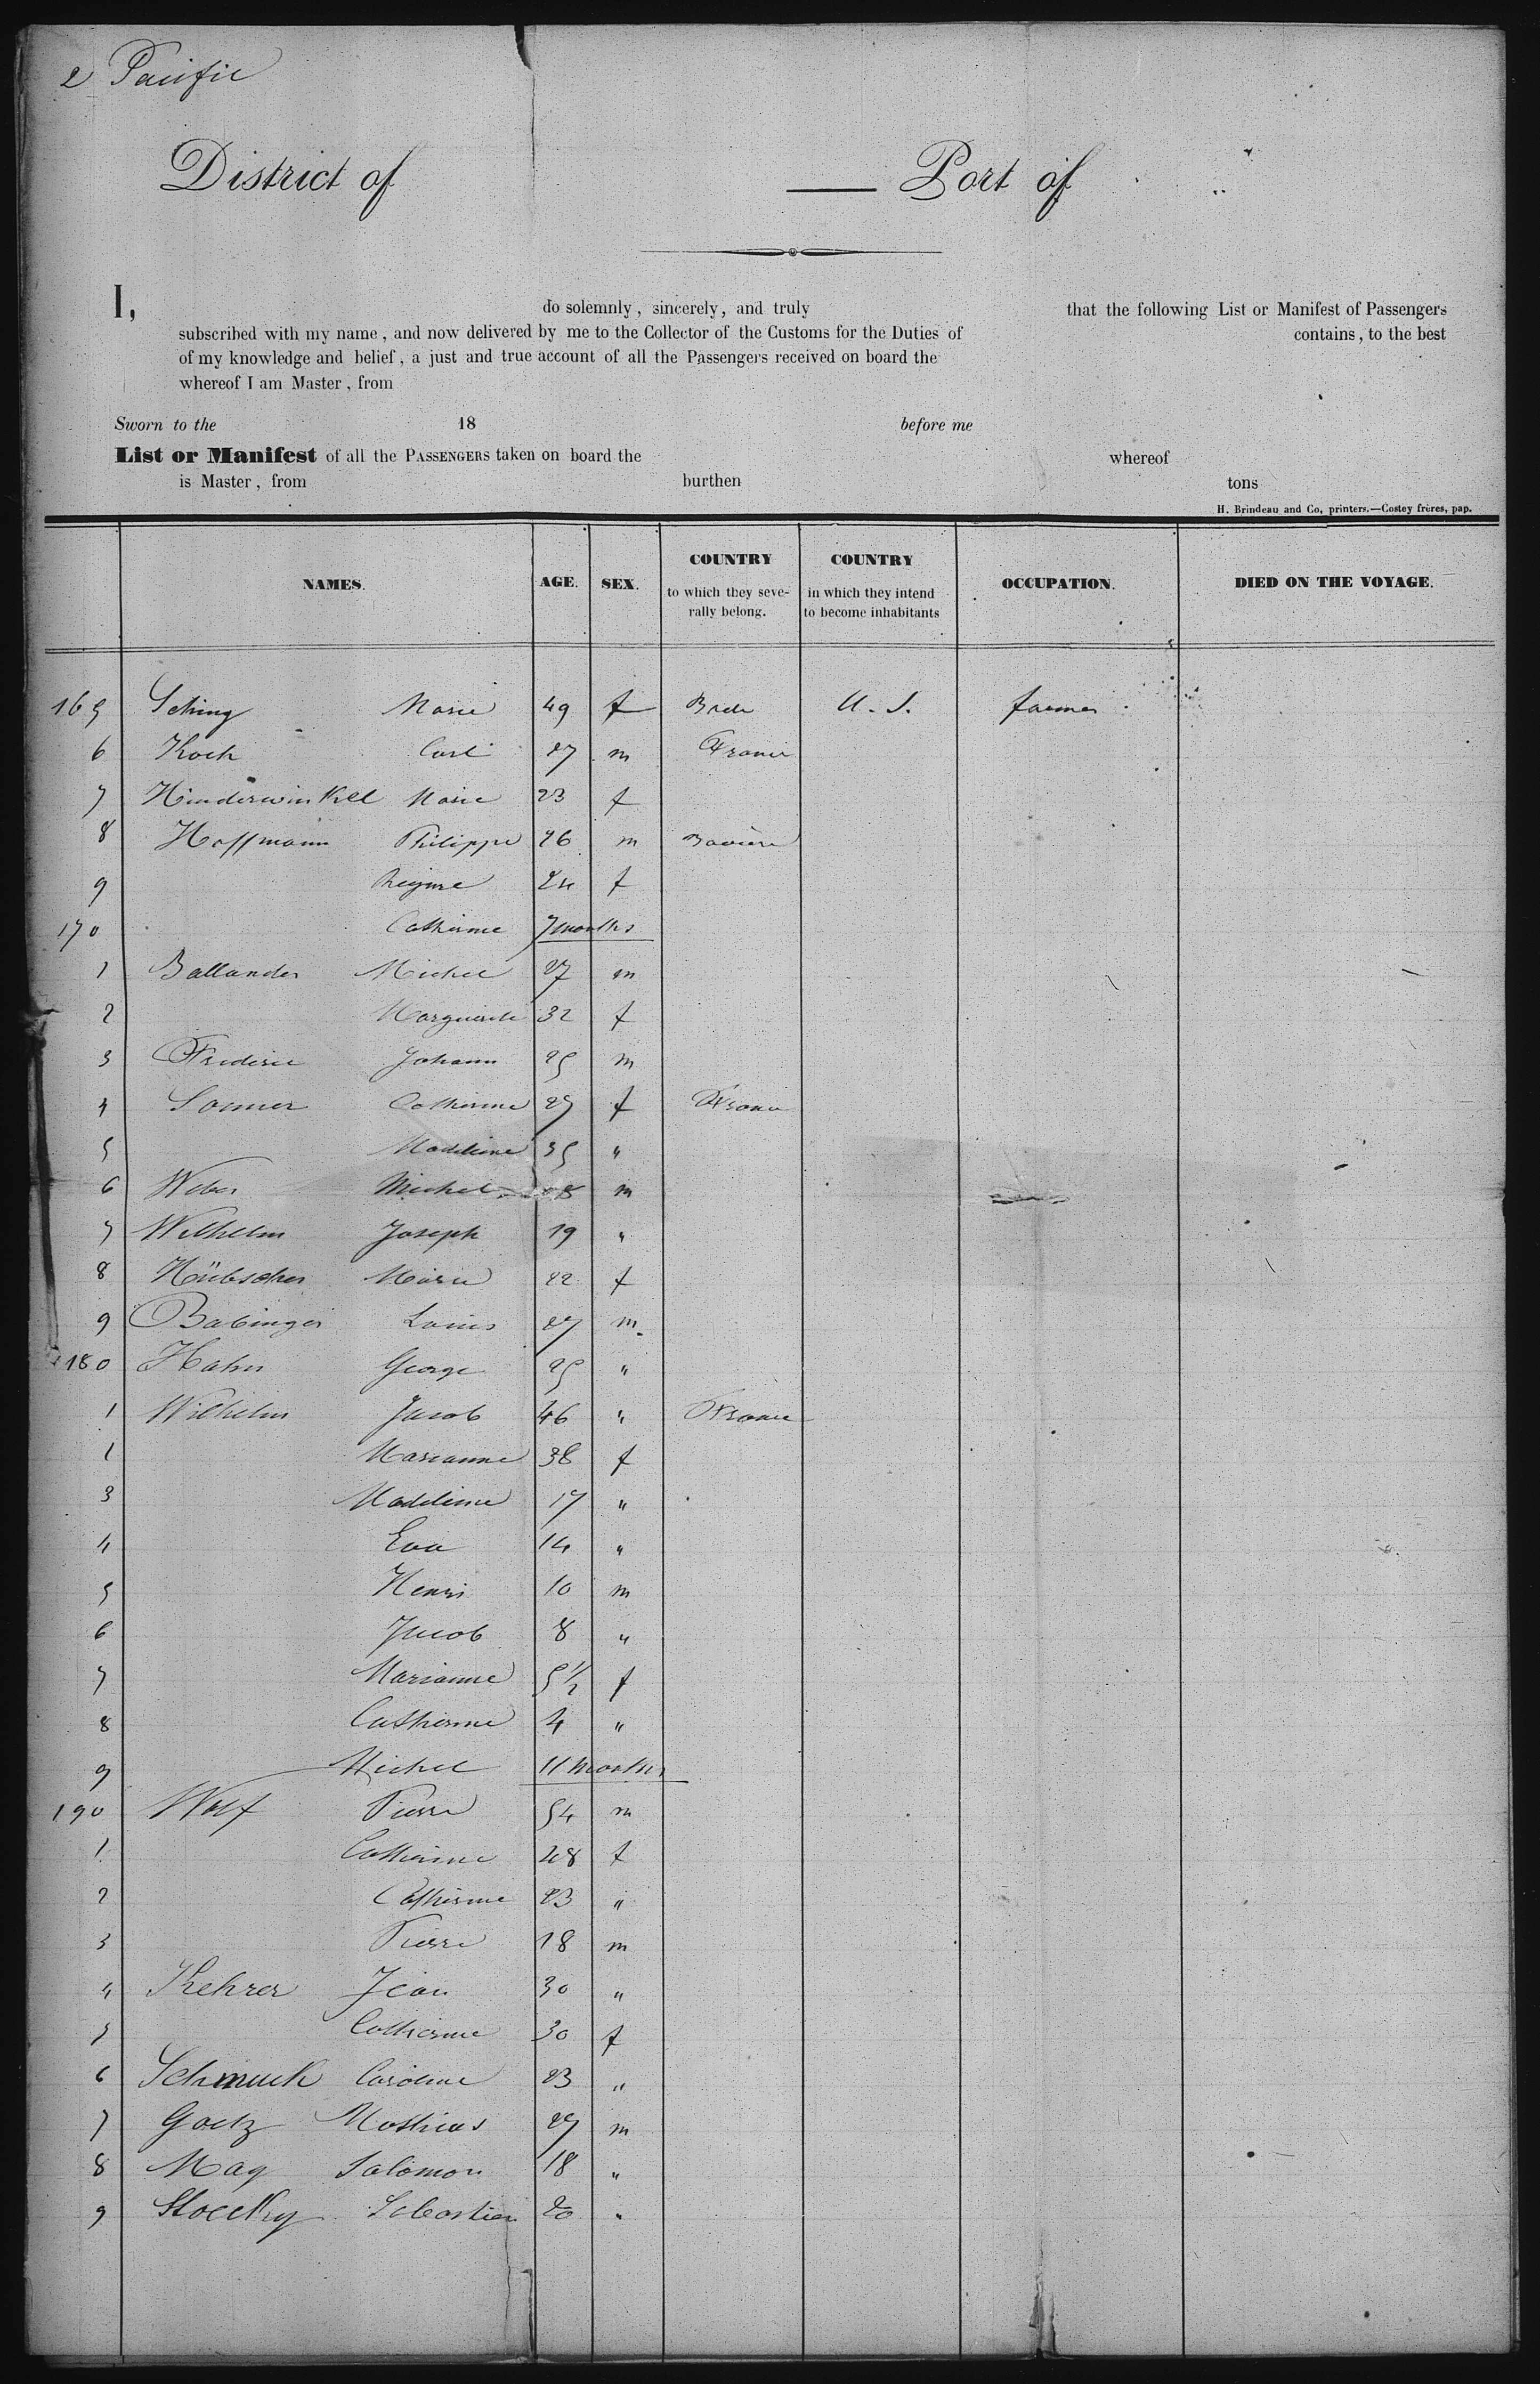 2 Pacific
District of Port of
I, do solemnly, sincerely, and truly that the following List or Manifest of Passengers
subscribed with my name, and now delivered by me to the Collector of the Customs for the Duties of contains, to the best
of my knowledge and belief, a just and true account of all the Passengers received on board the
whereof I am Master, from
Sworn to the 18 before me
List or Manifest of all the PASSENGERS taken on board the whereof
is Master, from burthen tons
H. Brindeau and Co, printers.—Costey frères, pap.
NAMES. AGE. SEX. COUNTRY to which they seve- rally belong. COUNTRY in which they intend to become inhabitants OCCUPATION. DIED ON THE VOYAGE.
165 Sching Marie 49 f Bade U. S. farmer
6 Koch Carl 27 m France
7 Hinderwinkel Marie 23 f
8 Hoffmann Philippe 26 m Baviere
9 Regine 24 f
170 Catherine 7 months
1 Ballander Michel 27 m
2 Marguerite 32 f
3 Frederic Johann 25 m
4 Sommer Catherine 27 f France
5 Madeleine 35 "
6 Weber Michel m
7 Wilhelm Joseph 19 "
8 Hübscher Marie 22 f
9 Babinger Louis 27 m.
180 Hahn George 25 "
1 Wilhelm Jacob 46 " France
1 Marianne 38 f
3 Madeleine 17 "
4 Eva 14 "
5 Henri 10 m
6 Jacob 8 "
7 Marianne 5 1/2 f
8 Catherine 4 "
9 Michel 11 months
190 Wolf Pierre 54 m
1 Catherine 48 f
2 Catherine 23 "
3 Pierre 18 m
4 Kehrer Jean 30 "
5 Catherine 30 f
6 Schmuck Caroline 23 "
7 Goetz Mathias 27 m
8 May Salomon 18 "
9 Stoecky Sebastien 20 "